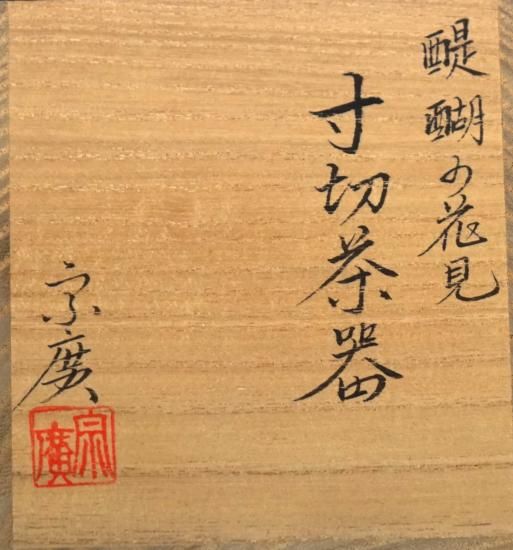 醍醐の花見
寸切茶器
宗廣
宗廣